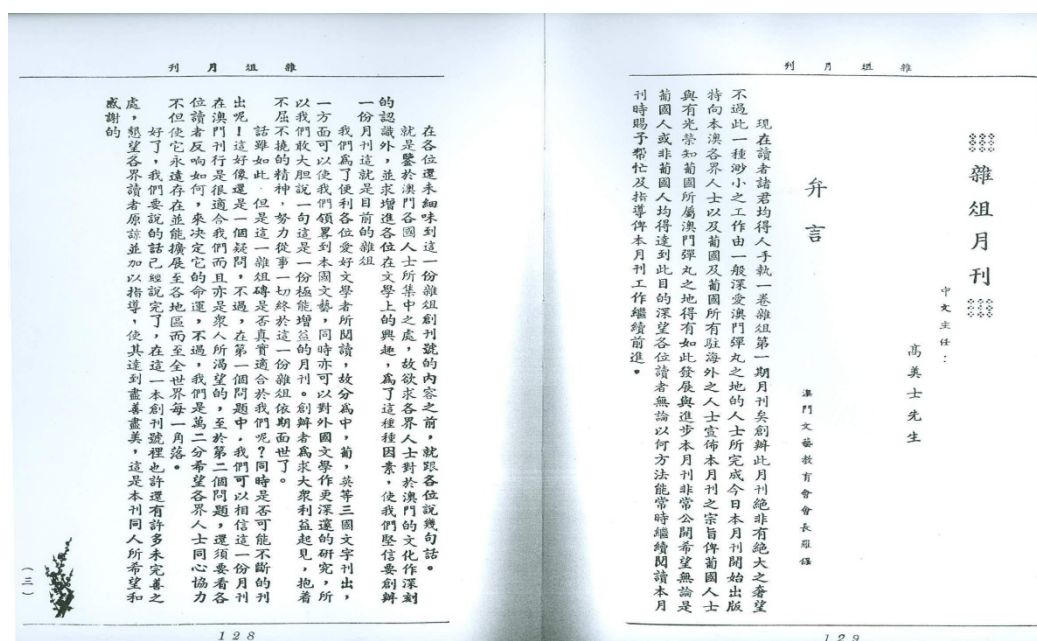 雜俎月刊
雜俎月刊
中文主任:
高美士先生
弁言
澳門文藝教育會會長羅保
現在讀者諸君均得人手執一卷雜俎第一期月刊矣創辦此月刊絕非有絕大之奢望
不過此一種渺小之工作由一般深愛澳門彈丸之地的人士所完成今日本月刊開始出版
特向本澳各界人士以及葡國及葡國所有駐海外之人士宣佈本月刊之宗旨俾葡國人士
與有光榮知葡國所屬澳門彈丸之地得有如此發展與進步本月刊非常公開希望無論是
葡國人或非葡國人均得達到此目的深望各位讀者無論以何方法能常時繼續閱讀本月
刊時賜予幫忙及指導俾本月刊工作繼續前進。
129
雜俎月刊
在各位還未細味到這一份雜俎創刊號的內容之前,就跟各位說幾句話。
就是鑒於澳門各國人士所集中之處,故欲求各界人士對於澳門的文化作深刻
的認識外,並求增進各位在文學上的興趣,爲了這種種因素,使我們堅信要創辦
一份月刊這就是目前的雜俎
我們爲了便利各位愛好文學者所閱讀,故分爲中,葡,英等三國文字刊出,
一方面可以使我們領畧到本國文藝,同時亦可以對外國文學作更深邃的研究,所
以我們敢大胆說一句這是一份極能增益的月刊。創辦者爲求大衆利益起見,抱着
不屈不撓的精神,努力從事一切終於這一份雜俎依期面世了。
話雖如此,但是這一雜俎磚是否真實適合於我們呢?同時是否可能不斷的刊
出呢!這好像還是一個疑問,不過,在第一個問題中,我們可以相信這一份月刊
在澳門刊行是很適合我們而且亦是衆人所渴望的,至於第二個問題,還須要看各
位讀者反响如何,來決定它的命運,不過,我們是萬二分希望各界人士同心協力
不但使它永遠存在並能擴展至各地區而至全世界每一角落。
好了,我們要說的話已經說完了,在這一本創刊號裡也許還有許多未完善之
處,懇望各界讀者原諒並加以指導,使其達到盡善盡美,這是本刊同人所希望和
感謝的
(三)
128